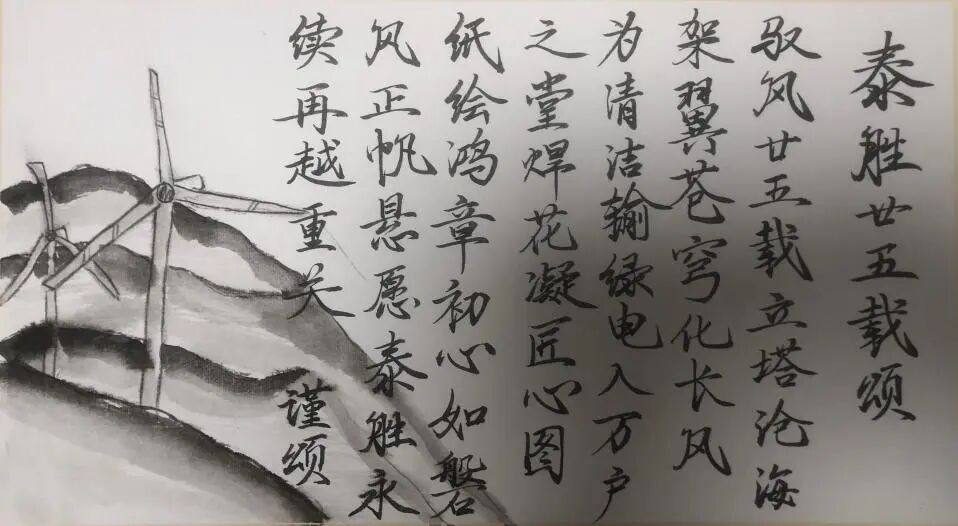 泰胜廿五载颂
驭风廿五载立塔沧海
架翼苍穹化长风
为清洁输绿电入万户
之堂焊花凝匠心图
纸绘鸿章初心如磐
风正帆悬愿泰胜永
续再越重关
谨颂